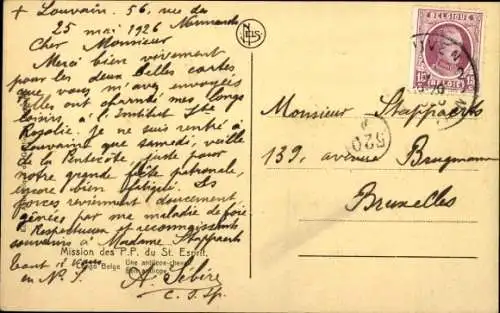 + Louvain. 56, rue de Namur
25 mai 1926
Cher Monsieur
Merci bien vivement
pour les deux belles cartes
que vous m'avez envoyées
Elles ont charmé mes longs
loisirs à l'Institut Ste
Rosalie. Je ne suis rentré à
Louvain que samedi, veille
de la Pentecôte, juste pour
notre grande fête patronale,
encore bien fatigué. Les
forces reviennent doucement
gênées par ma maladie de foie
Respectueux et reconnaissants
souvenirs à Madame Stappaerts
tout à vous
en N. S.
A. Sébire
C. S. Sp.
Mission des P.P. du St. Esprit.
Congo Belge
Une antilope-cheval
NELS
BELGIQUE
15 15
BELGIË
520
Monsieur Stappaerts
139, avenue Brugmann
Bruxelles